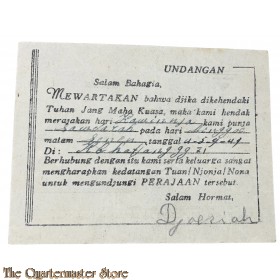 UNDANGAN
Salam Bahagia,
MEWARTAKAN bahwa djika dikehendaki
Tuhan Jang Maha Kuasa, maka kami hendak
merajakan hari kami punja
pada hari
malam tanggal
Di:
Berhubung dengan itu kami serta keluarga sangat
mengharapkan kedatangan Tuan! Njonja! Nona
untuk mengundjungi PERAJAAN tersebut.
Salam Hormat,
Djoeriah
The Quartermaster Store